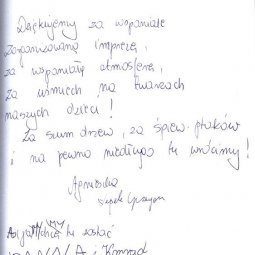 Dziękujemy za wspaniale
zorganizowaną imprezę,
za wspaniałą atmosferę,
za uśmiech na twarzach
naszych dzieci!
Za szum drzew, za śpiew ptaków
i na pewno niedługo tu wrócimy!
Agnieszka
tu zostać
i Konrad